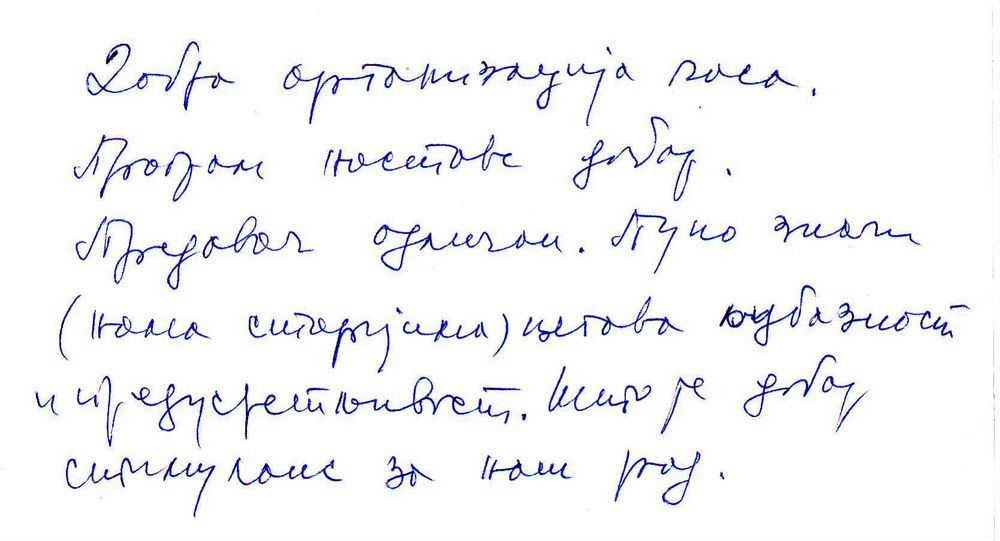 Добра организација часа.
Програм наставе добар.
Предавач одличан. Пуно значи
(нама старијима) његова љубазност
и предусретљивост. Што је добар
стимуланс за наш рад.